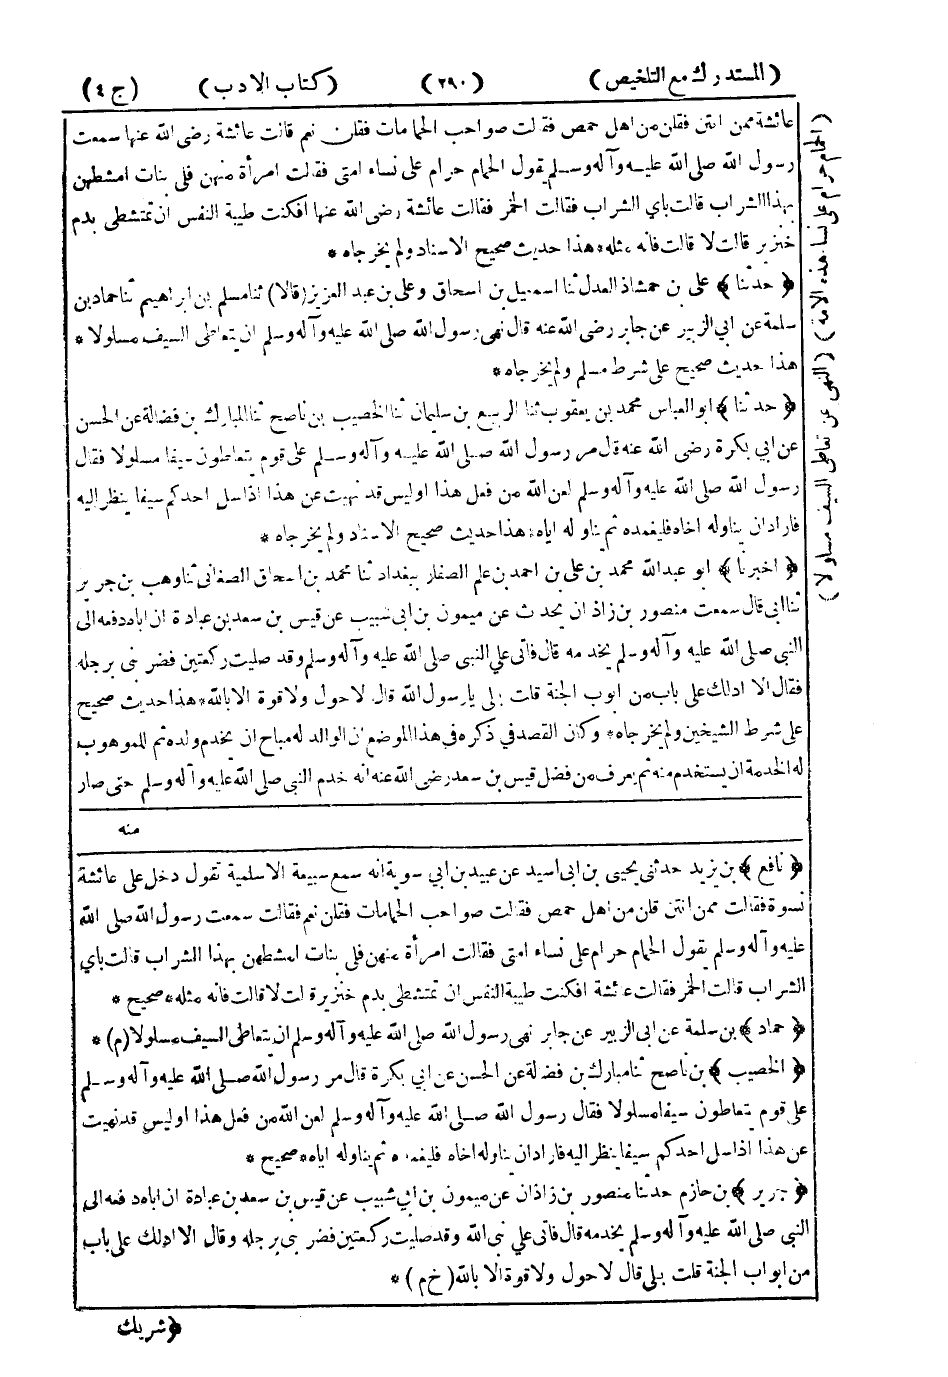 (المستدرك مع التلخيص) (٢٩٠) (كتاب الادب) (ج ٤)
عائشة ممن انتن فقلن من اهل حمص فقالت صواحب الحمامات فقلن نعم قالت عائشة رضى الله عنها سمعت
رسول الله صلى الله عليه وآله وسلم يقول الحمام حرام على نساء امتى فقالت امرأة منهن فلى بنات امشطهن
بهذا الشراب قالت باي الشراب فقالت الخمر فقالت عائشة رضى الله عنها افكنت طيبة النفس ان تمتشطى بدم
خنزير قالت لا قالت فانه مثله * هذا حديث صحيح الاسناد ولم يخرجاه *
﴿حدثنا﴾ على بن حمشاذ العدل ثنا اسمعيل بن اسحاق وعلى بن عبد العزيز (قالا) ثنا مسلم بن ابراهيم ثنا حماد بن
سلمة عن ابى الزبير عن جابر رضى الله عنه قال نهى رسول الله صلى الله عليه وآله وسلم ان يتعاطى السيف مسلولا *
هذا حديث صحيح على شرط مسلم ولم يخرجاه *
﴿حدثنا﴾ ابو العباس محمد بن يعقوب ثنا الربيع بن سليمان ثنا الخصيب بن ناصح ثنا المبارك بن فضالة عن الحسن
عن ابي بكرة رضى الله عنه قال مر رسول الله صلى الله عليه وآله وسلم على قوم يتعاطون سيفا مسلولا فقال
رسول الله صلى الله عليه وآله وسلم لعن الله من فعل هذا اوليس قد نهيت عن هذا اذا سل احدكم سيفا ينظر اليه
فاراد ان يناوله اخاه فليغمده ثم يناوله اياه * هذا حديث صحيح الاسناد ولم يخرجاه *
﴿اخبرنا﴾ ابو عبدالله محمد بن على بن احمد بن علم الصفار ببغداد ثنا محمد بن اسحاق الصغانى ثنا وهب بن جرير
ثنا ابى قال سمعت منصور بن زاذان يحدث عن ميمون بن ابى شبيب عن قيس بن سعد بن عبادة ان اباه دفعه الى
النبى صلى الله عليه وآله وسلم يخدمه قال فاتى على النبى صلى الله عليه وآله وسلم وقد صليت ركعتين فضربنى برجله
فقال الا ادلك على باب من ابوب الجنة قلت بلى يارسول الله قال لاحول ولا قوة الا بالله * هذا حديث صحيح
على شرط الشيخين ولم يخرجاه * وكان القصد في ذكره في هذا الموضع ان الوالد له مباح ان يخدم ولده ثم للموهوب
له الخدمة ان يستخدم منه ثم يعرف من فضل قيس بن سعد رضى الله عنه انه خدم النبى صلى الله عليه وآله وسلم حتى صار
منه
﴿نافع﴾ بن يزيد حدثنى يحيى بن ابى اسيد عن عبيد بن ابي سوية انه سمع سبيعة الاسلمية تقول دخل على عائشة
نسوة فقالت ممن انتن قلن من اهل حمص فقالت صواحب الحمامات فقلن نعم فقالت سمعت رسول الله صلى الله
عليه وآله وسلم يقول الحمام حرام على نساء امتى فقالت امرأة منهن فلى بنات امشطهن بهذا الشراب قالت باي
الشراب قالت الخمر فقالت عائشة افكنت طيبة النفس ان تمتشطى بدم خنزير قالت لا قالت فانه مثله * صحيح *
﴿حماد﴾ بن سلمة عن ابى الزبير عن جابر نهى رسول الله صلى الله عليه وآله وسلم ان يتعاطى السيف مسلولا (م) *
﴿الخصيب﴾ بن ناصح ثنا مبارك بن فضالة عن الحسن عن ابي بكرة قال مر رسول الله صلى الله عليه وآله وسلم
على قوم يتعاطون سيفا مسلولا فقال رسول الله صلى الله عليه وآله وسلم لعن الله من فعل هذا اوليس قد نهيت
عن هذا اذا سل احدكم سيفا ينظر اليه فاراد ان يناوله اخاه فليغمده ثم يناوله اياه * صحيح *
﴿جرير﴾ بن حازم حدثنا منصور بن زاذان عن ميمون بن ابي شبيب عن قيس بن سعد بن عبادة ان اباه دفعه الى
النبي صلى الله عليه وآله وسلم يخدمه قال فاتى علي نبى الله وقد صليت ركعتين فضربنى برجله وقال الا ادلك على باب
من ابواب الجنة قلت بلى قال لا حول ولا قوة الا بالله (خ م) *
﴿شريك
(الحمام حرام على نساء هذه الامة) (النهى عن تعاطى السيف مسلولا)